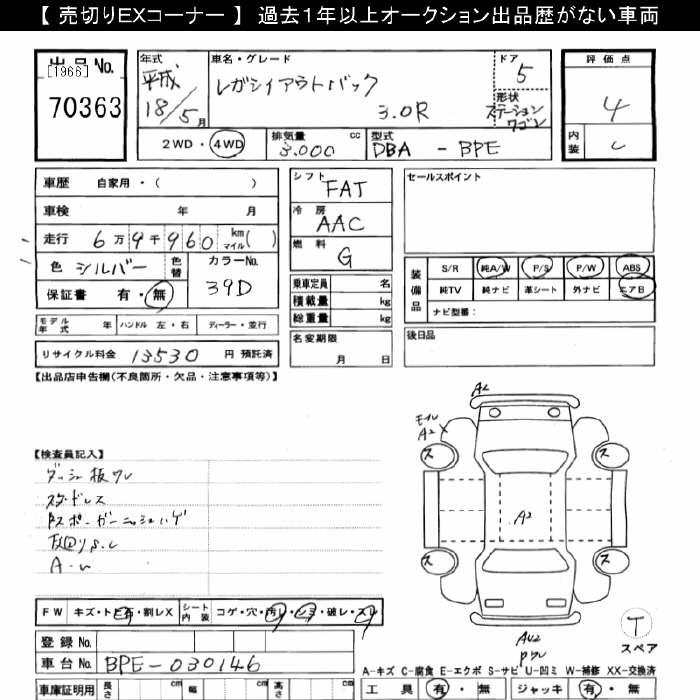 【 売切りEXコーナー 】 過去１年以上オークション出品歴がない車両
出品No.
【1966】
70363
年式
平成
18/5月
車名・グレード
レガシィアウトバック
3.0R
ドア
5
形状
ステーションワゴン
評価点
4
内装
C
2WD・4WD
排気量 cc
3.000
型式
DBA - BPE
車歴 自家用・( )
車検 年 月
走行 6万9千960 km マイル ( )
色 シルバー 色替
カラーNo.
39D
保証書 有・無
モデル年式 年 ハンドル 左・右 ディーラー・並行
リサイクル料金 13530 円 預託済
シフト
FAT
冷房
AAC
燃料
G
乗車定員 名
積載量 kg
総重量 kg
名変期限
月 日
セールスポイント
装備品
S/R 純A/W P/S P/W ABS
純TV 純ナビ 革シート 外ナビ エアB
ナビ型番:
後日品
【出品店申告欄(不良箇所・欠品・注意事項等)】
【検査員記入】
ダッシュ板ワレ
スタッドレス
A-ル
A2
モール
A2
ス
ス
A2
ス
ス
AU2
T
スペア
FW キズ・トビ石・割レX シート内装 コゲ・穴・汚レ・シミ・破レ・スレ
登録No.
車台No. BPE-030146
A-キズ C-腐食 E-エクボ S-サビ U-凹ミ W-補修 XX-交換済
車庫証明用 長さ cm 幅 cm 高さ cm
工具 有・無 ジャッキ 有・無